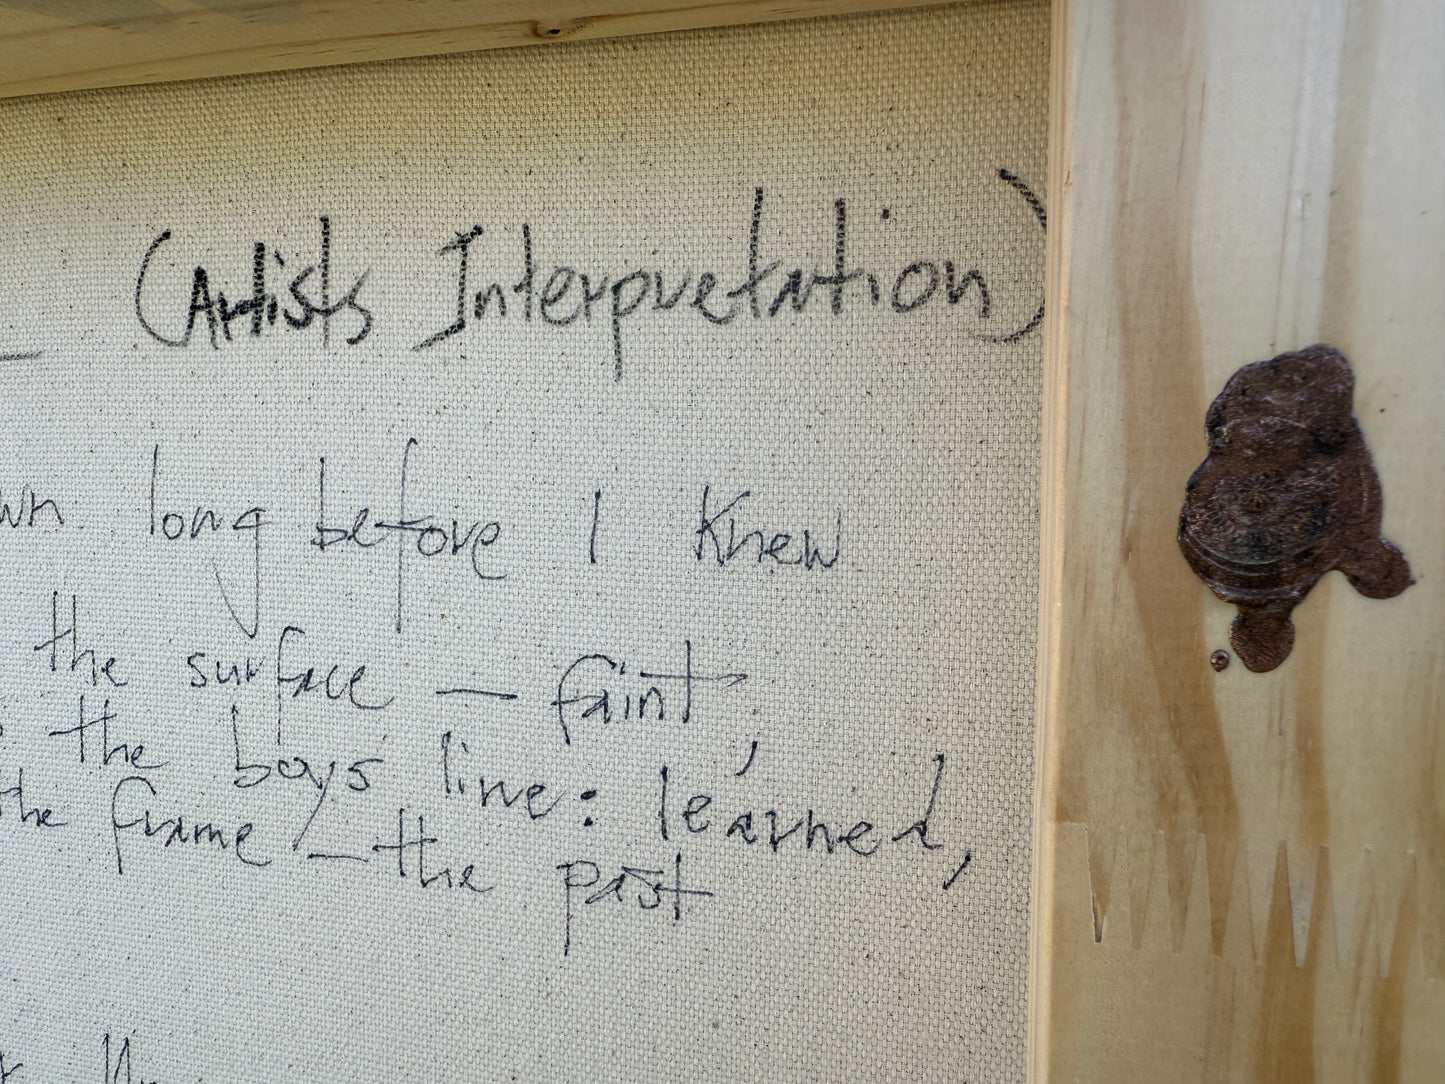 (Artists Interpretation)
wn long before I Knew
the surface — faint,
the boys' line: learned,
the frame — the past